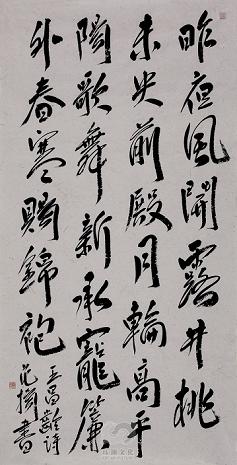 昨夜風開露井桃
未央前殿月輪高平
陽歌舞新承寵簾
外春寒賜錦袍
王昌齡詩
書